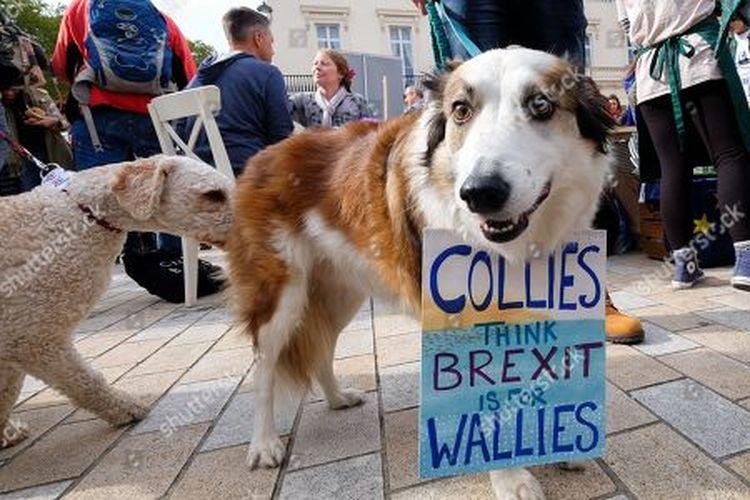 COLLIES
THINK
BREXIT
IS FOR
WALLIES
shutterstock